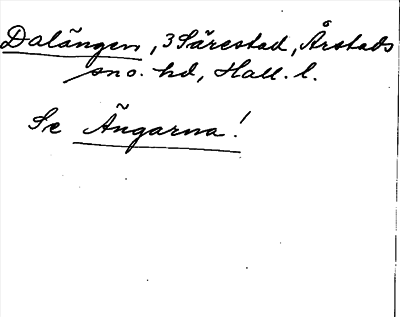 Dalängen, 3 Särestad, Årstads
sno. hd, Hall. l.
Se Ängarna!